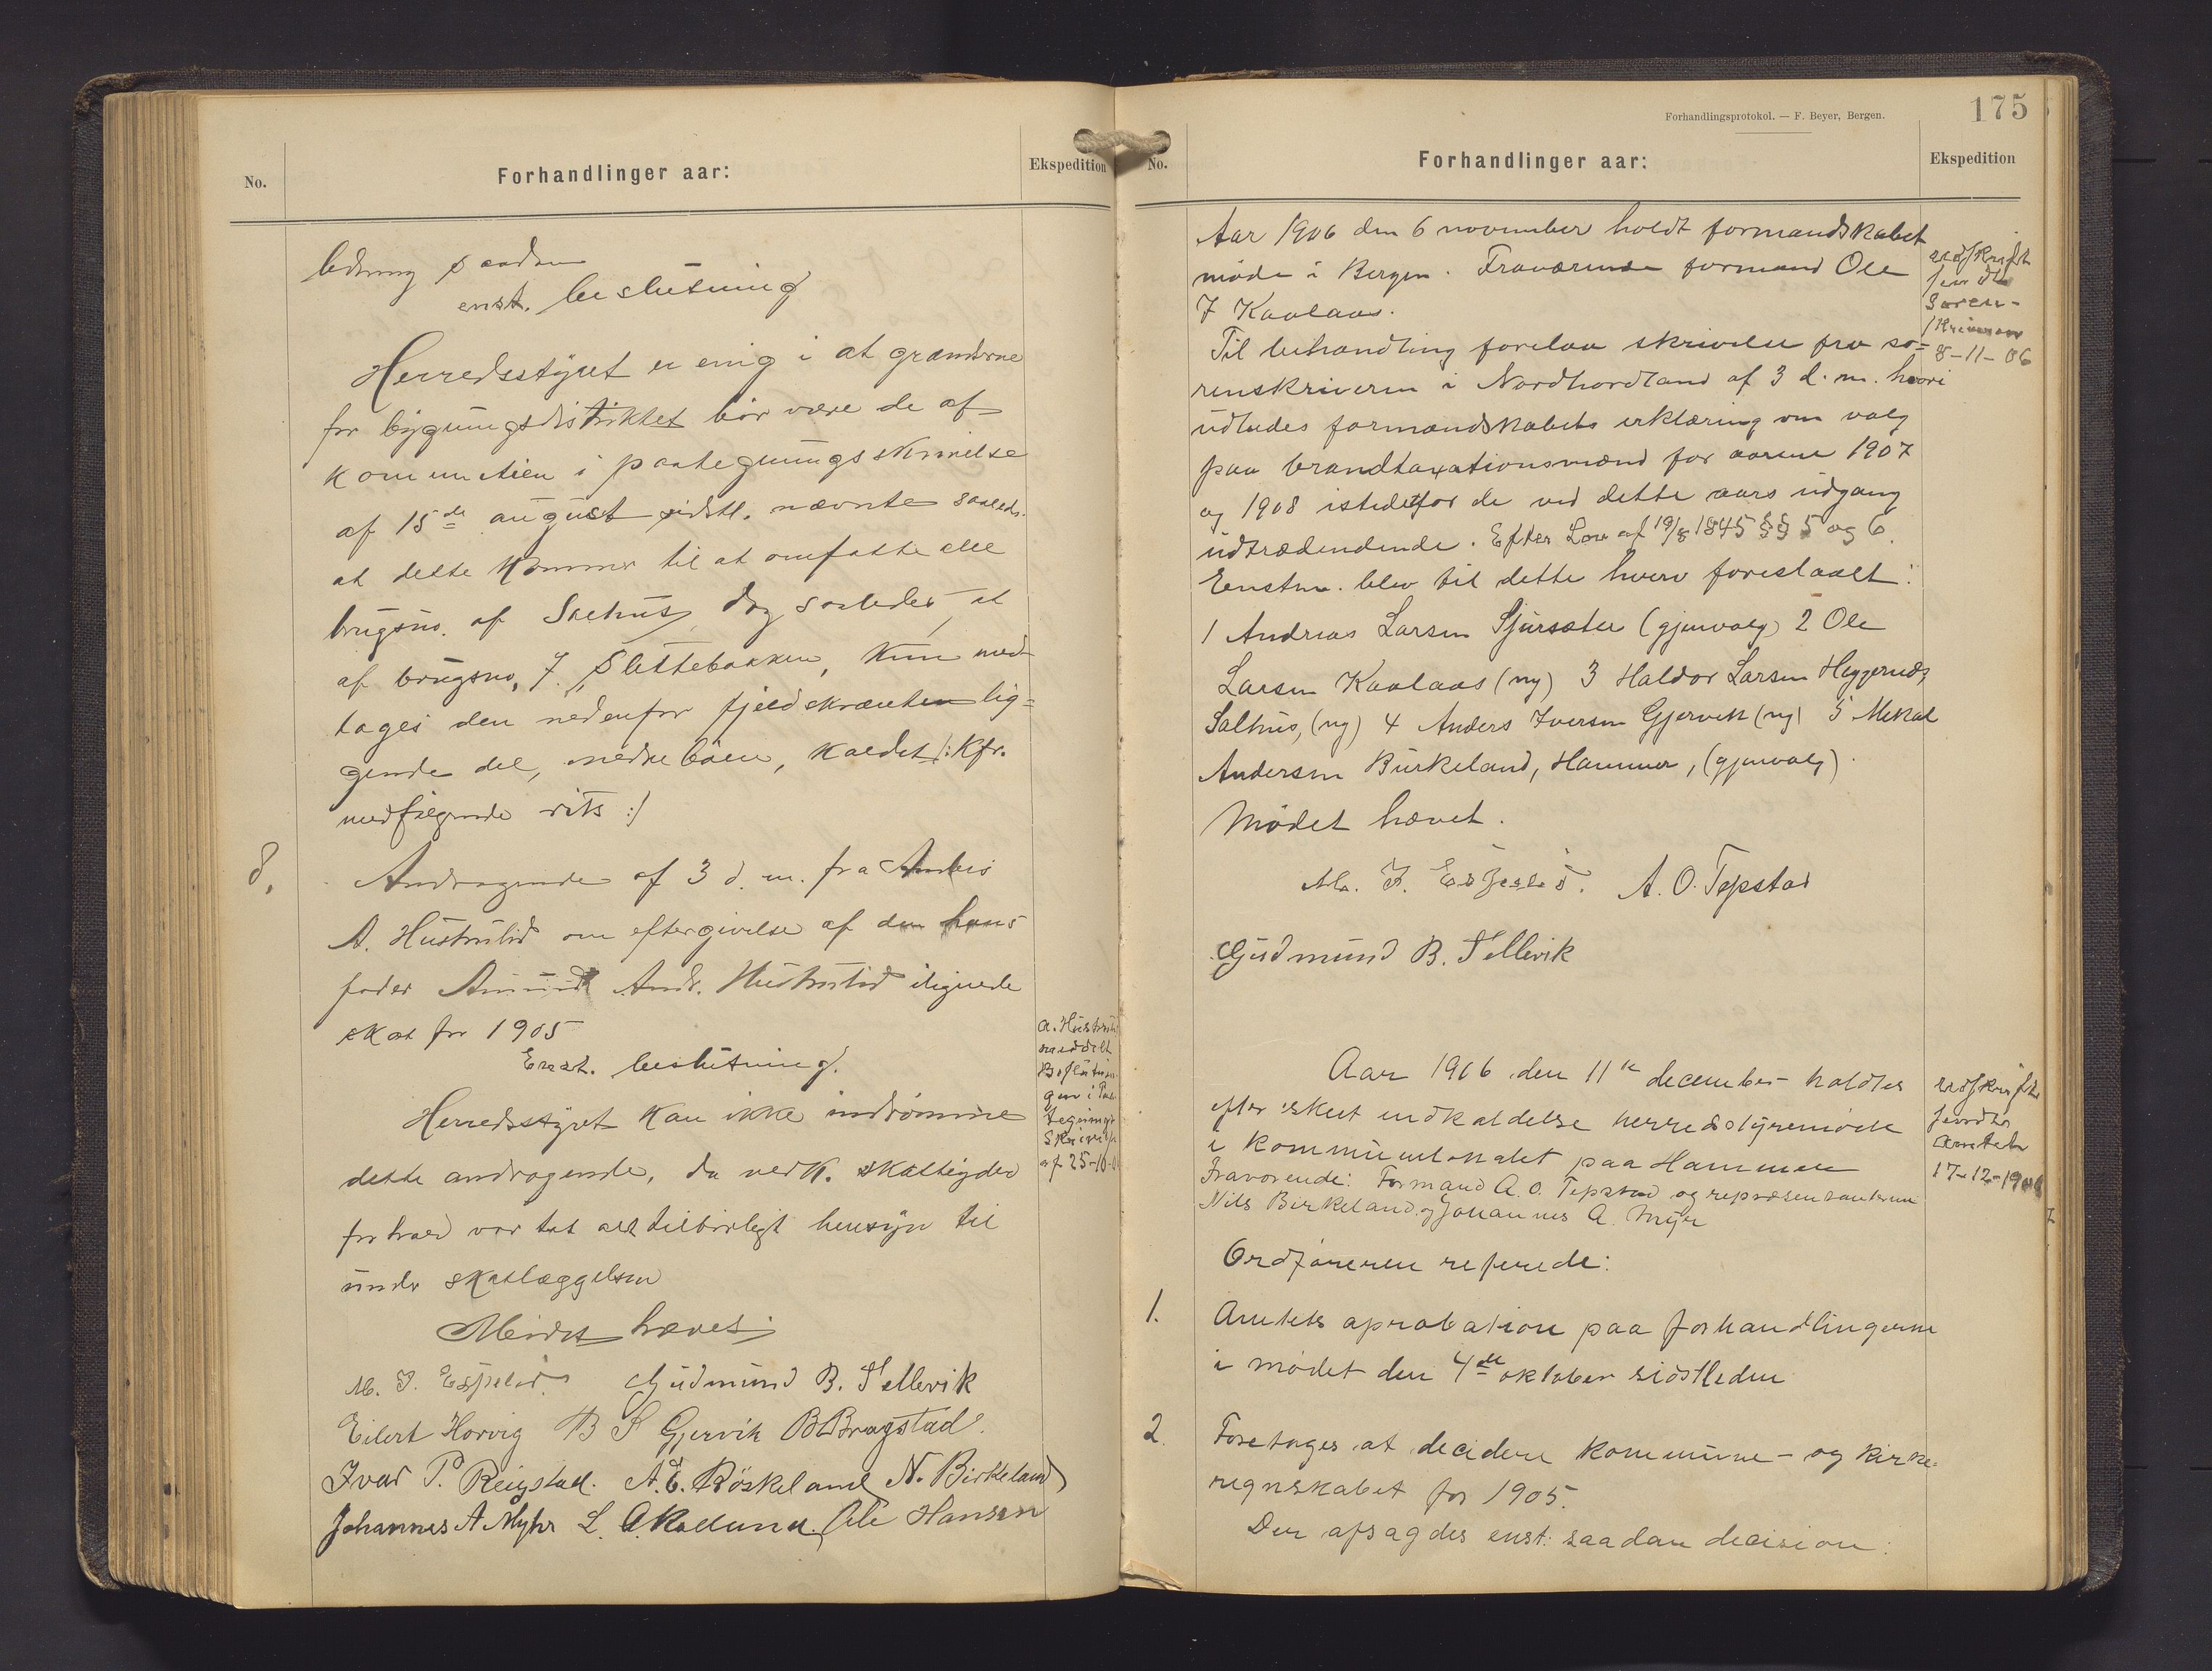 No.
Forhandlinger aar:
Ekspedition
ledning saadan
enst. beslutning
Herredsstyret er enig i at grændserne
for bygningsdistriktet bør være de af
kommunetien i paategningsskrivelse
af 15de august sidstl. nævnte saaleds.
at dette kommer til at omfatte alle
brugsno. af Salhus, dog saaledes, at
af brugsno. 7. Slettebakken, kun med-
tages den nedenfor fjeldskrænten lig=
gende del, nedrebøen, kaldet /: Kfr.
medfølgende rits :/
8.
Andragende af 3 d. m. fra Anders
A. Hustrulid om eftergivelse af den hans
fader Amund And. Hustrulid ilignede
skat for 1905
Enst. beslutning.
Herredsstyret kan ikke indrømme
dette andragende, da vedk. skatteyder
forhold var tat alt tilbørligt hensyn til
under skatlæggelsen
A. Hustrulid
meddelt
Beslutnin-
gen i Paa-
tegnings
Skrivelse
af 25-10-06
Mødet hævet.
M. J. Espelid. Gudmund B. Tellevik
Eilert Horvig B S Gjervik B Bragstad.
Ivar P. Reigstad. A. E. Röskeland N. Birkeland
Johannes A Myhr L. A. Rødlund. Ole Hansen
Forhandlingsprotokol. — F. Beyer, Bergen.
175
No.
Forhandlinger aar:
Ekspedition
Aar 1906 den 6 november holdt formandskabet
møde i Bergen. Fraværende formand Ole
J Kaalaas.
Til behandling forelaa skrivelse fra so=
renskriveren i Nordhordland af 3 d. m. hvori
udbedes formandskabets erklæring om valg
paa brandtaxationsmænd for aarene 1907
og 1908 istedetfor de ved dette aars udgang
udtrædendende. Efter Lov af 19/8 1845 §§ 5 og 6.
Enstm. blev til dette hverv foreslaalt:
1 Andreas Larsen Sjursæter (gjenvalg) 2 Ole
Larsen Kaalaas (ny) 3 Haldor Larsen Heggernes,
Salhus, (ny) 4 Anders Iversen Gjervik (ny) 5 Mikal
Andersen Birkeland, Hammer, (gjenvalg).
Mødet hævet.
udskrift
sendt
Soren-
skriveren
8-11-06
M. J. Espelid. A. O. Tepstad
Gudmund B. Tellevik
Aar 1906 den 11te december holdtes
efter skeet indkaldelse herredsstyremøde
i kommunelokalet paa Hammer
Fraværende: Formand A. O. Tepstad og repræsentanterne
Nils Birkeland og Johannes A. Myr
udskrift
sendt
amtet
17-12-1906
Ordføreren referede:
1.
Amtets aprobation paa forhandlingerne
i mødet den 4de oktober sidstleden
2.
Foretages at decidere kommune- og kirke-
regnskabet for 1905.
Der afsagdes enst. saadan decision: